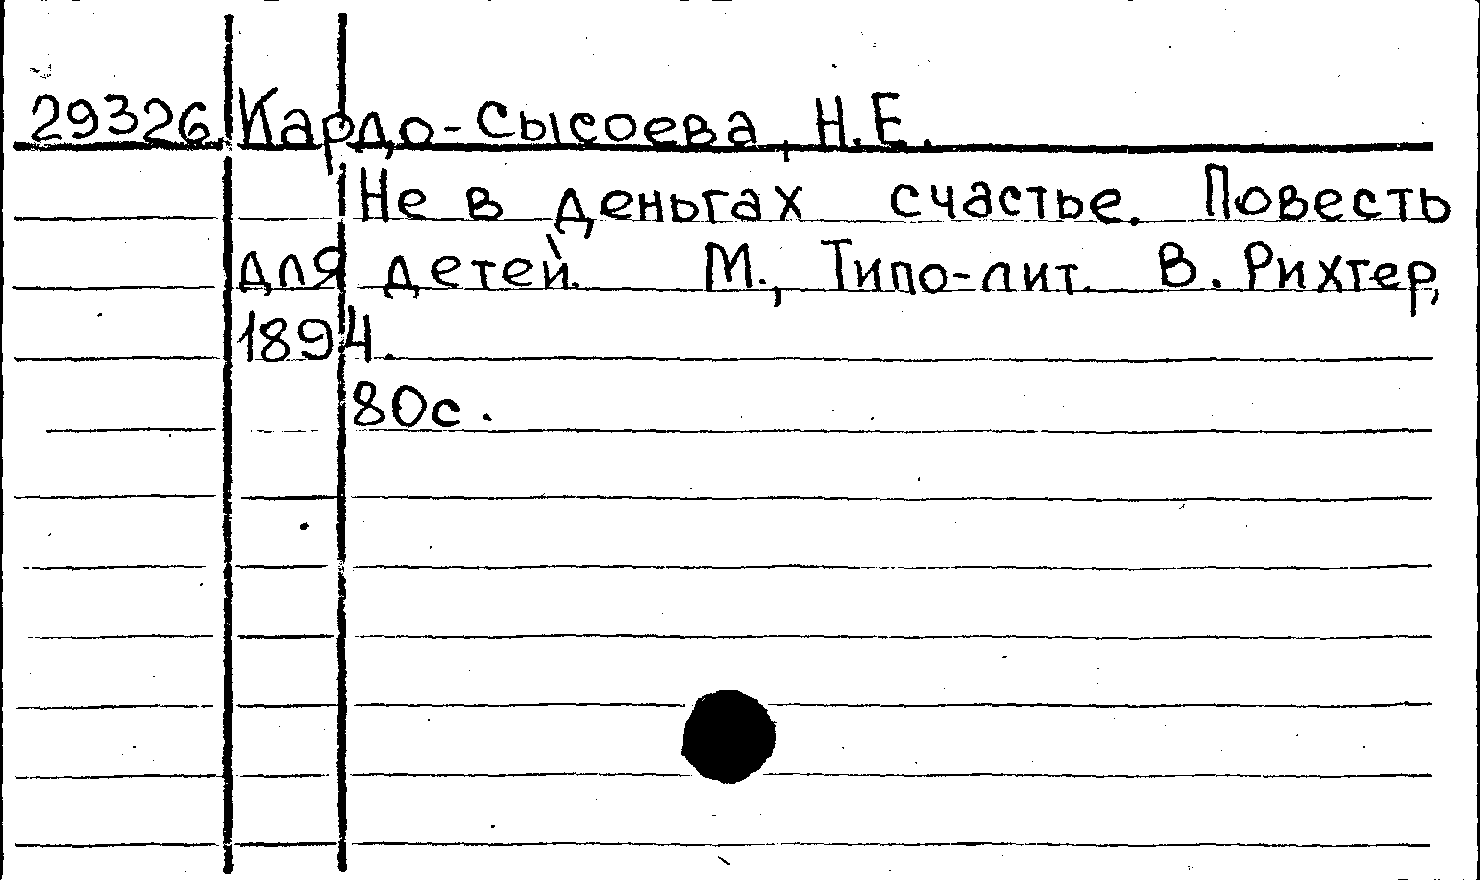 29326. Кардо-Сысоева, Н.Е.
Не в деньгах счастье. Повесть
для детей. М., Типо-лит. В. Рихтер,
1894.
80с.